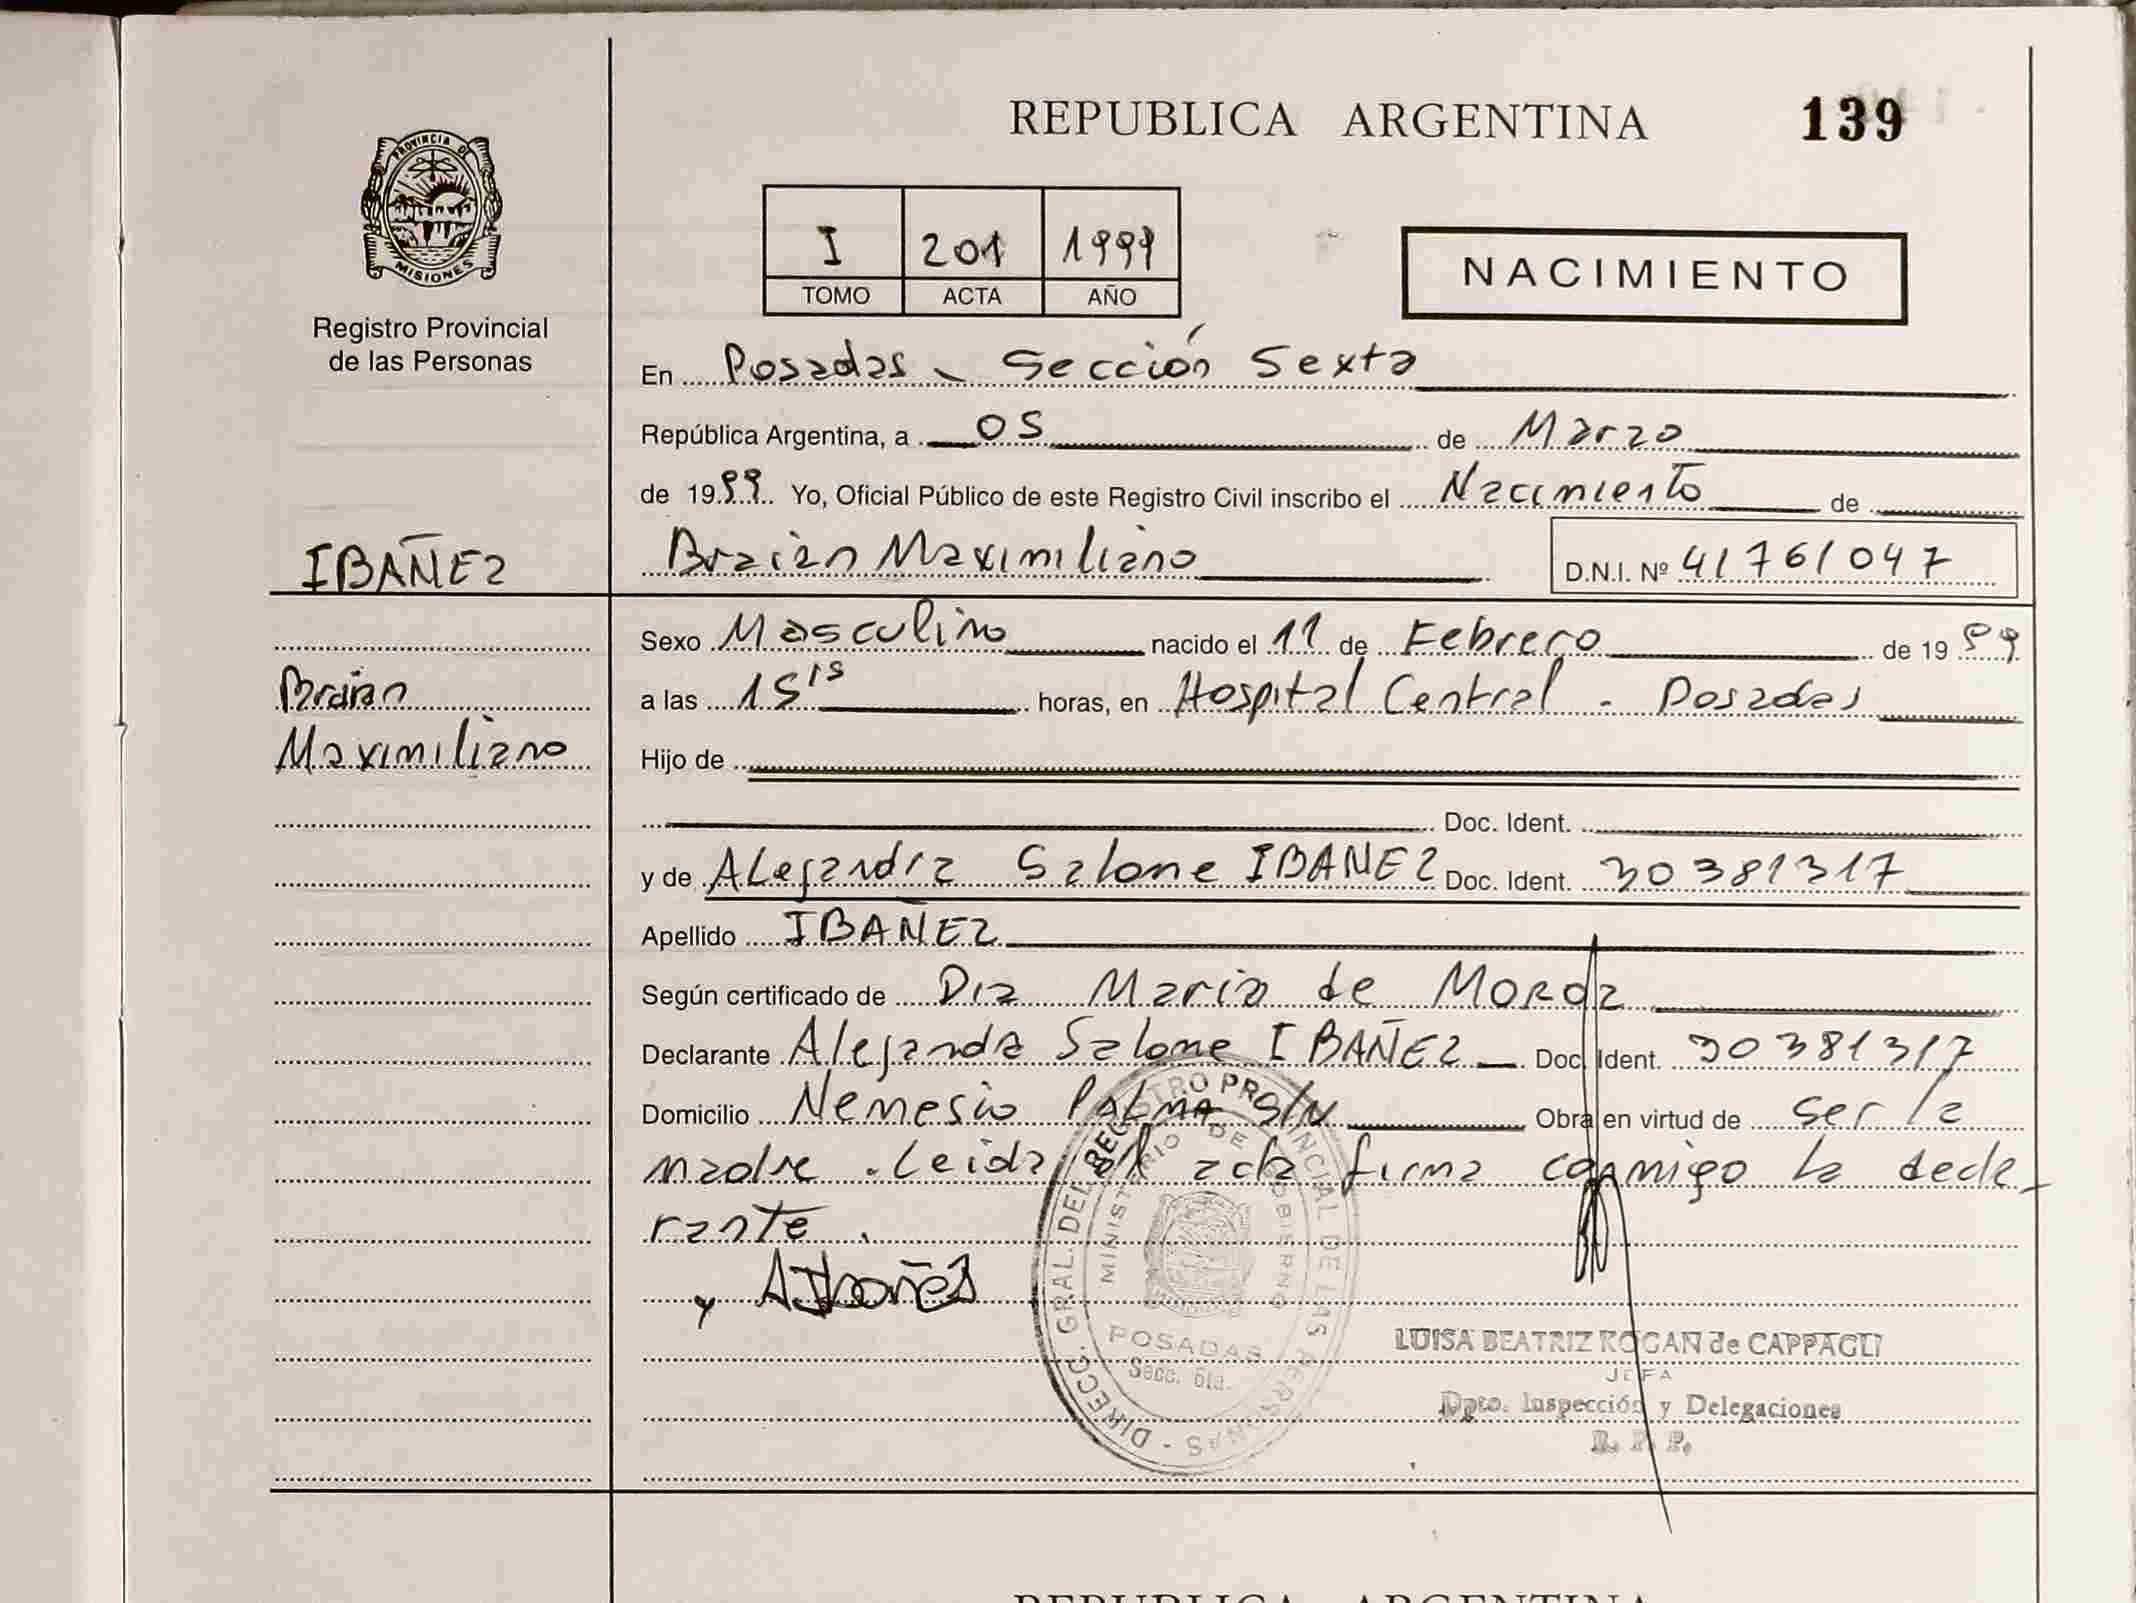 REPUBLICA ARGENTINA 139
PROVINCIA DE
MISIONES
Registro Provincial
de las Personas
I 201 1999
TOMO ACTA AÑO
NACIMIENTO
En Posadas - Sección Sexta
República Argentina, a 05 de Marzo
de 1999 Yo, Oficial Público de este Registro Civil inscribo el Nacimiento de
IBAÑEZ
Braian Maximiliano D.N.I. Nº 41761047
Sexo Masculino nacido el 11 de Febrero de 1999
Braian
Maximiliano
a las 15 15 horas, en Hospital Central - Posadas
Hijo de
Doc. Ident.
y de Alejandra Salome IBAÑEZ Doc. Ident. 30381317
Apellido IBAÑEZ
Según certificado de Dra Maria de Moroz
Declarante Alejandra Salome IBAÑEZ Doc. Ident. 30381317
Domicilio Nemesio Palma S/N Obra en virtud de ser la
madre . Leida el acta firma conmigo la decla-
rante .
AIbañes
DIRECC. GRAL. DEL REGISTRO PROVINCIAL DE LAS PERSONAS
MINISTERIO DE GOBIERNO
POSADAS
Secc. 6ta.
LUISA BEATRIZ KOGAN de CAPPAGLI
JEFA
Dpto. Inspección y Delegaciones
R. P. P.
REPUBLICA ARGENTINA